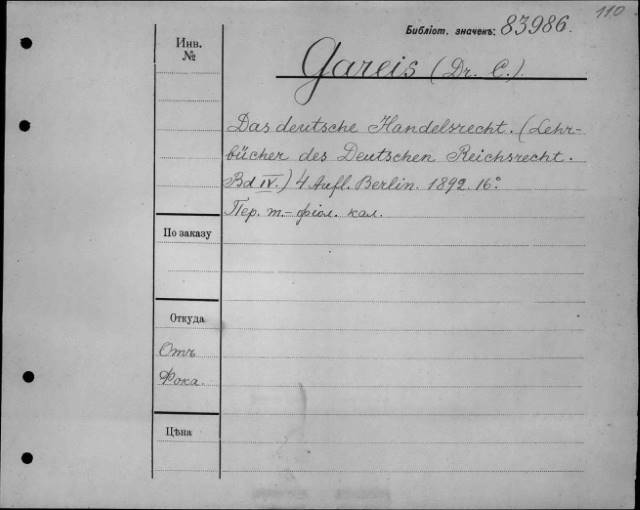 110
Библіот. значекъ: 83986.
Инв. №
Gareis (Dr. C.).
Das deutsche Handelsrecht. (Lehr-
bücher des Deutschen Reichsrecht.
Bd IV.) 4 Aufl. Berlin. 1892. 16°.
Пер. т.-фіол. кал.
По заказу
Откуда
Отъ
Фока.
Цѣна